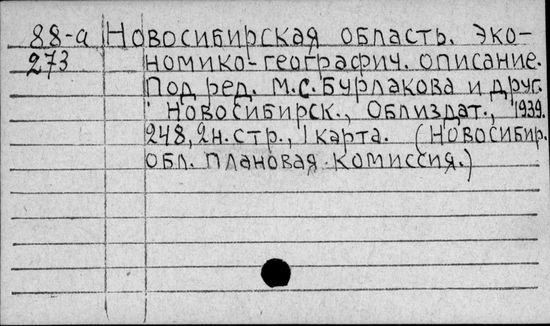 88-а Новосибирская область. Эко-
273 номико-географич. описание.
Под ред. М.С. Бурлакова и друг.
Новосибирск., Облиздат., 1939.
248, 2н. стр., 1 карта. (Новосибир.
обл. плановая комиссия.)